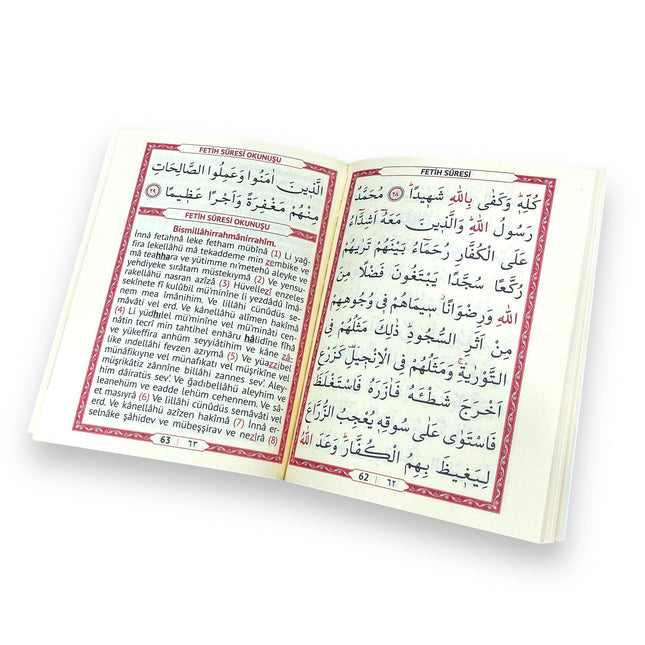 FETİH SÛRESİ
كُلِّهٖؕ وَكَفٰى بِاللّٰهِ شَهٖيدًاؕ ﴿٢٨﴾ مُحَمَّدٌ
رَسُولُ اللّٰهِؕ وَالَّذٖينَ مَعَهُٓ اَشِدَّٓاءُ
عَلَى الْكُفَّارِ رُحَمَٓاءُ بَيْنَهُمْ تَرٰيهُمْ
رُكَّعًا سُجَّدًا يَبْتَغُونَ فَضْلًا مِنَ
اللّٰهِ وَرِضْوَانًاؗ سٖيمَاهُمْ فٖي وُجُوهِهِمْ
مِنْ اَثَرِ السُّجُودِؕ ذٰلِكَ مَثَلُهُمْ فِي
التَّوْرٰيةِۚ وَمَثَلُهُمْ فِي الْاِنْجٖيلِ۠ كَزَرْعٍ
اَخْرَجَ شَطْـَٔهُ فَاٰزَرَهُ فَاسْتَغْلَظَ
فَاسْتَوٰى عَلٰى سُوقِهٖ يُعْجِبُ الزُّرَّاعَ
لِيَغٖيظَ بِهِمُ الْكُفَّارَؕ وَعَدَ اللّٰهُ
62 | ٦٢
FETİH SÛRESİ OKUNUŞU
الَّذٖينَ اٰمَنُوا وَعَمِلُوا الصَّالِحَاتِ
مِنْهُمْ مَغْفِرَةً وَاَجْرًا عَظٖيمًا ﴿٢٩﴾
FETİH SÛRESİ OKUNUŞU
Bismillâhirrahmânirrahîm.
İnnâ fetahnâ leke fetham mübînâ (1) Li yağ-
fira lekellâhü mâ tekaddeme min zembike ve
mâ teahhara ve yütimme ni'metehû aleyke ve
yehdiyeke sırâtam müstekıymâ (2) Ve yensu-
rakellâhü nasran azîzâ (3) Hüvellezî enzeles
sekînete fî kulûbil mü'minîne li yezdâdû îmâ-
nem mea îmânihim. Ve lillâhi cünûdüs se-
mâvâti vel erd. Ve kânellâhü alîmen hakîmâ
(4) Li yüdhılel mü'minîne vel mü'minâti cen-
nâtin tecrî min tahtihel enhâru hâlidîne fîhâ
ve yükeffira anhüm seyyiâtihim ve kâne zâ-
like ındellâhi fevzen azıymâ (5) Ve yüazzibel
münâfikıyne vel münâfıkatı vel müşrikîne vel
müşrikâtiz zânnîne billâhi zannes sev'. Aley-
him dâiratüs sev'. Ve ğadıbellâhü aleyhim ve
leanehüm ve eadde lehüm cehennem. Ve sâ-
et masıyrâ (6) Ve lillâhi cünûdüs semâvâti vel
erd. Ve kânellâhü azîzen hakîmâ (7) İnnâ er-
selnâke şâhidev ve mübeşşirav ve nezîrâ (8)
63 | ٦٣